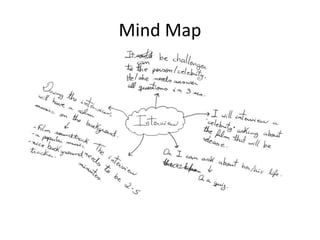 Mind Map
It can be challenge
to the person/celebrity.
He/she needs answer
all questions in 3 min.
During the interview,
will have a film
music on the background.
- Film soundtrack
- in popular music
- nice background
The interview
needs to be 2-5
minutes
Interview
I will interview a
celebrity asking about
the film that will be
release.
Or I can ask about her/his life.
Or a quiz.